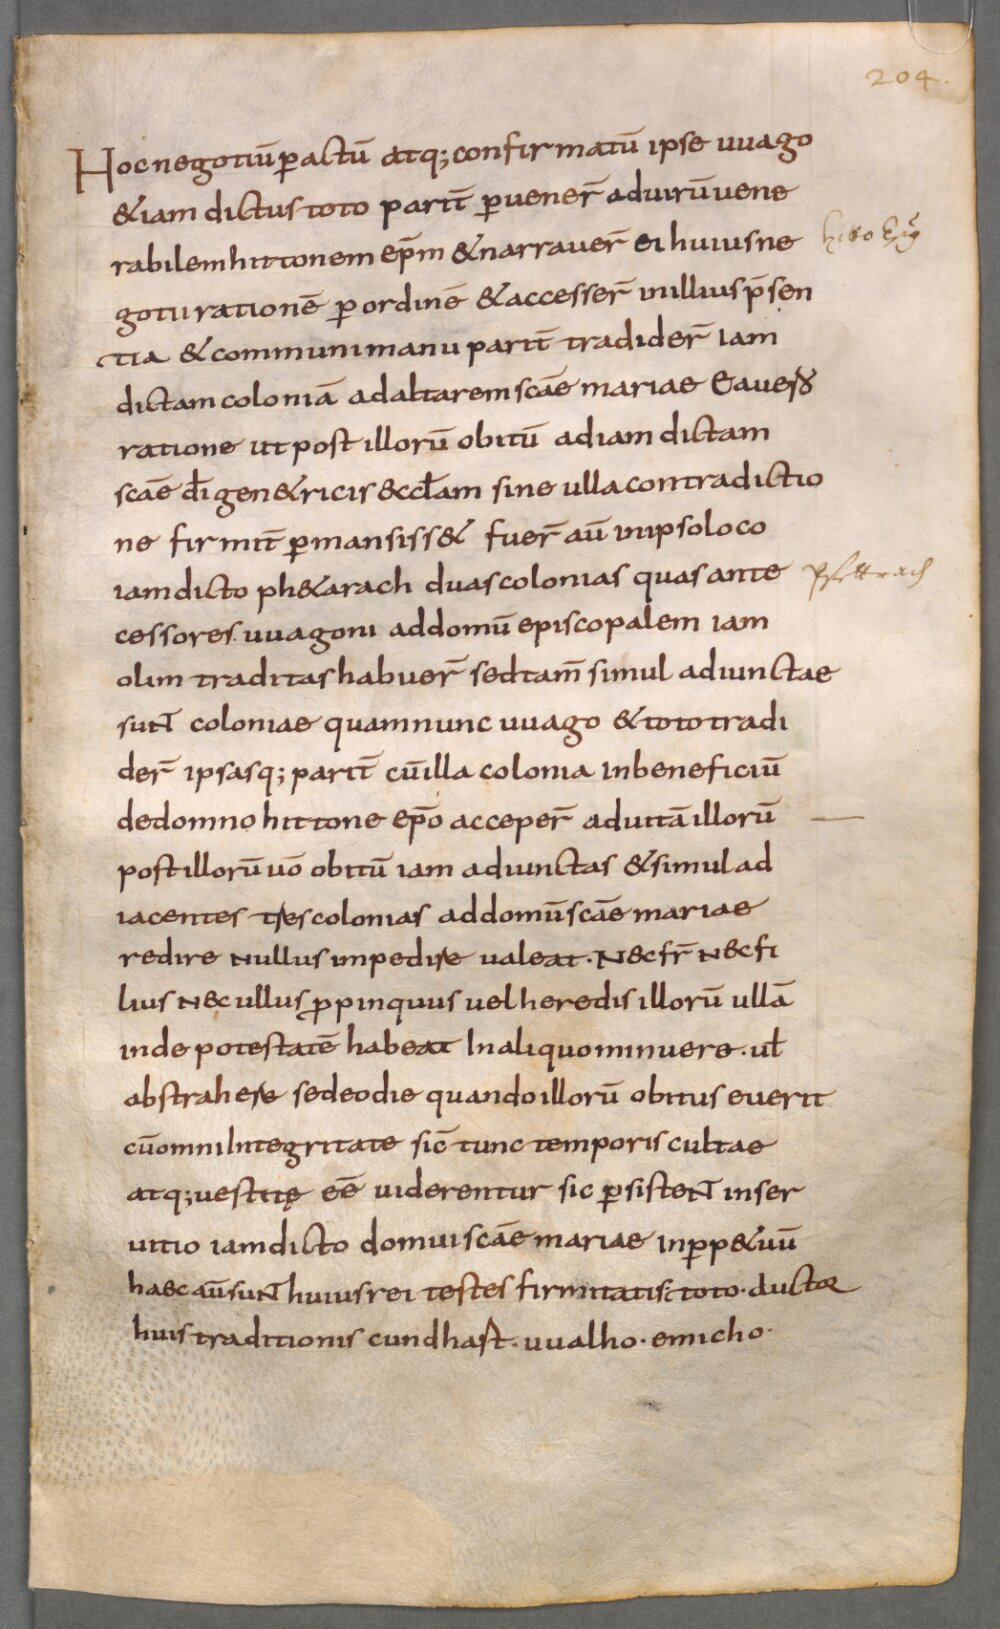 204.
Hoc negotiū pactū atq; confirmatū ipse uuago
& iam dictus toto parit̄ puener̄ ad uirū uene
rabilem hittonem ep̄m & narrauer̄ ei huius ne
hitto
gotii rationē p ordinē & accesser̄ in illius p̄sen
tia & communi manu parit̄ tradider̄ iam
dictam coloniā ad altarem scāe mariae ea uero
ratione ut post illorū obitū ad iam dictam
scāe dī gen&ricis &ccl̄am sine ulla contradictio
ne firmit̄ pmansiss& fuer̄ aū in ipso loco
iam dicto ph&arach duas colonias quas ante
Pfettrach
cessores uuagoni ad domū episcopalem iam
olim traditas habuer̄ sed tam̄ simul adiunctae
sunt coloniae quam nunc uuago & toto tradi
der̄ ipsasq; parit̄ cū illa colonia in beneficiū
de domno hittone ep̄o acceper̄ ad uitā illorū
post illorū uō obitū iam adiunctas & simul ad
iacentes tres colonias ad domū scāe mariae
redire nullus impedire ualeat. Nec fr̄ nec fi
lius nec ullus ppinquus uel heredis illorū ullā
inde potestatē habeat In aliquo minuere. ul̄
abstrahere sed eo die quando illorū obitus euerit
cū omni Integritate sic̄ tunc temporis cultae
atq; uestitę eē uiderentur sic psistent in ser
uitio iam dicto domui scāe mariae in pp&uū
haec aū sunt huius rei testes firmitatis: toto. ductor
huis traditionis cundhart. uualho. emicho.